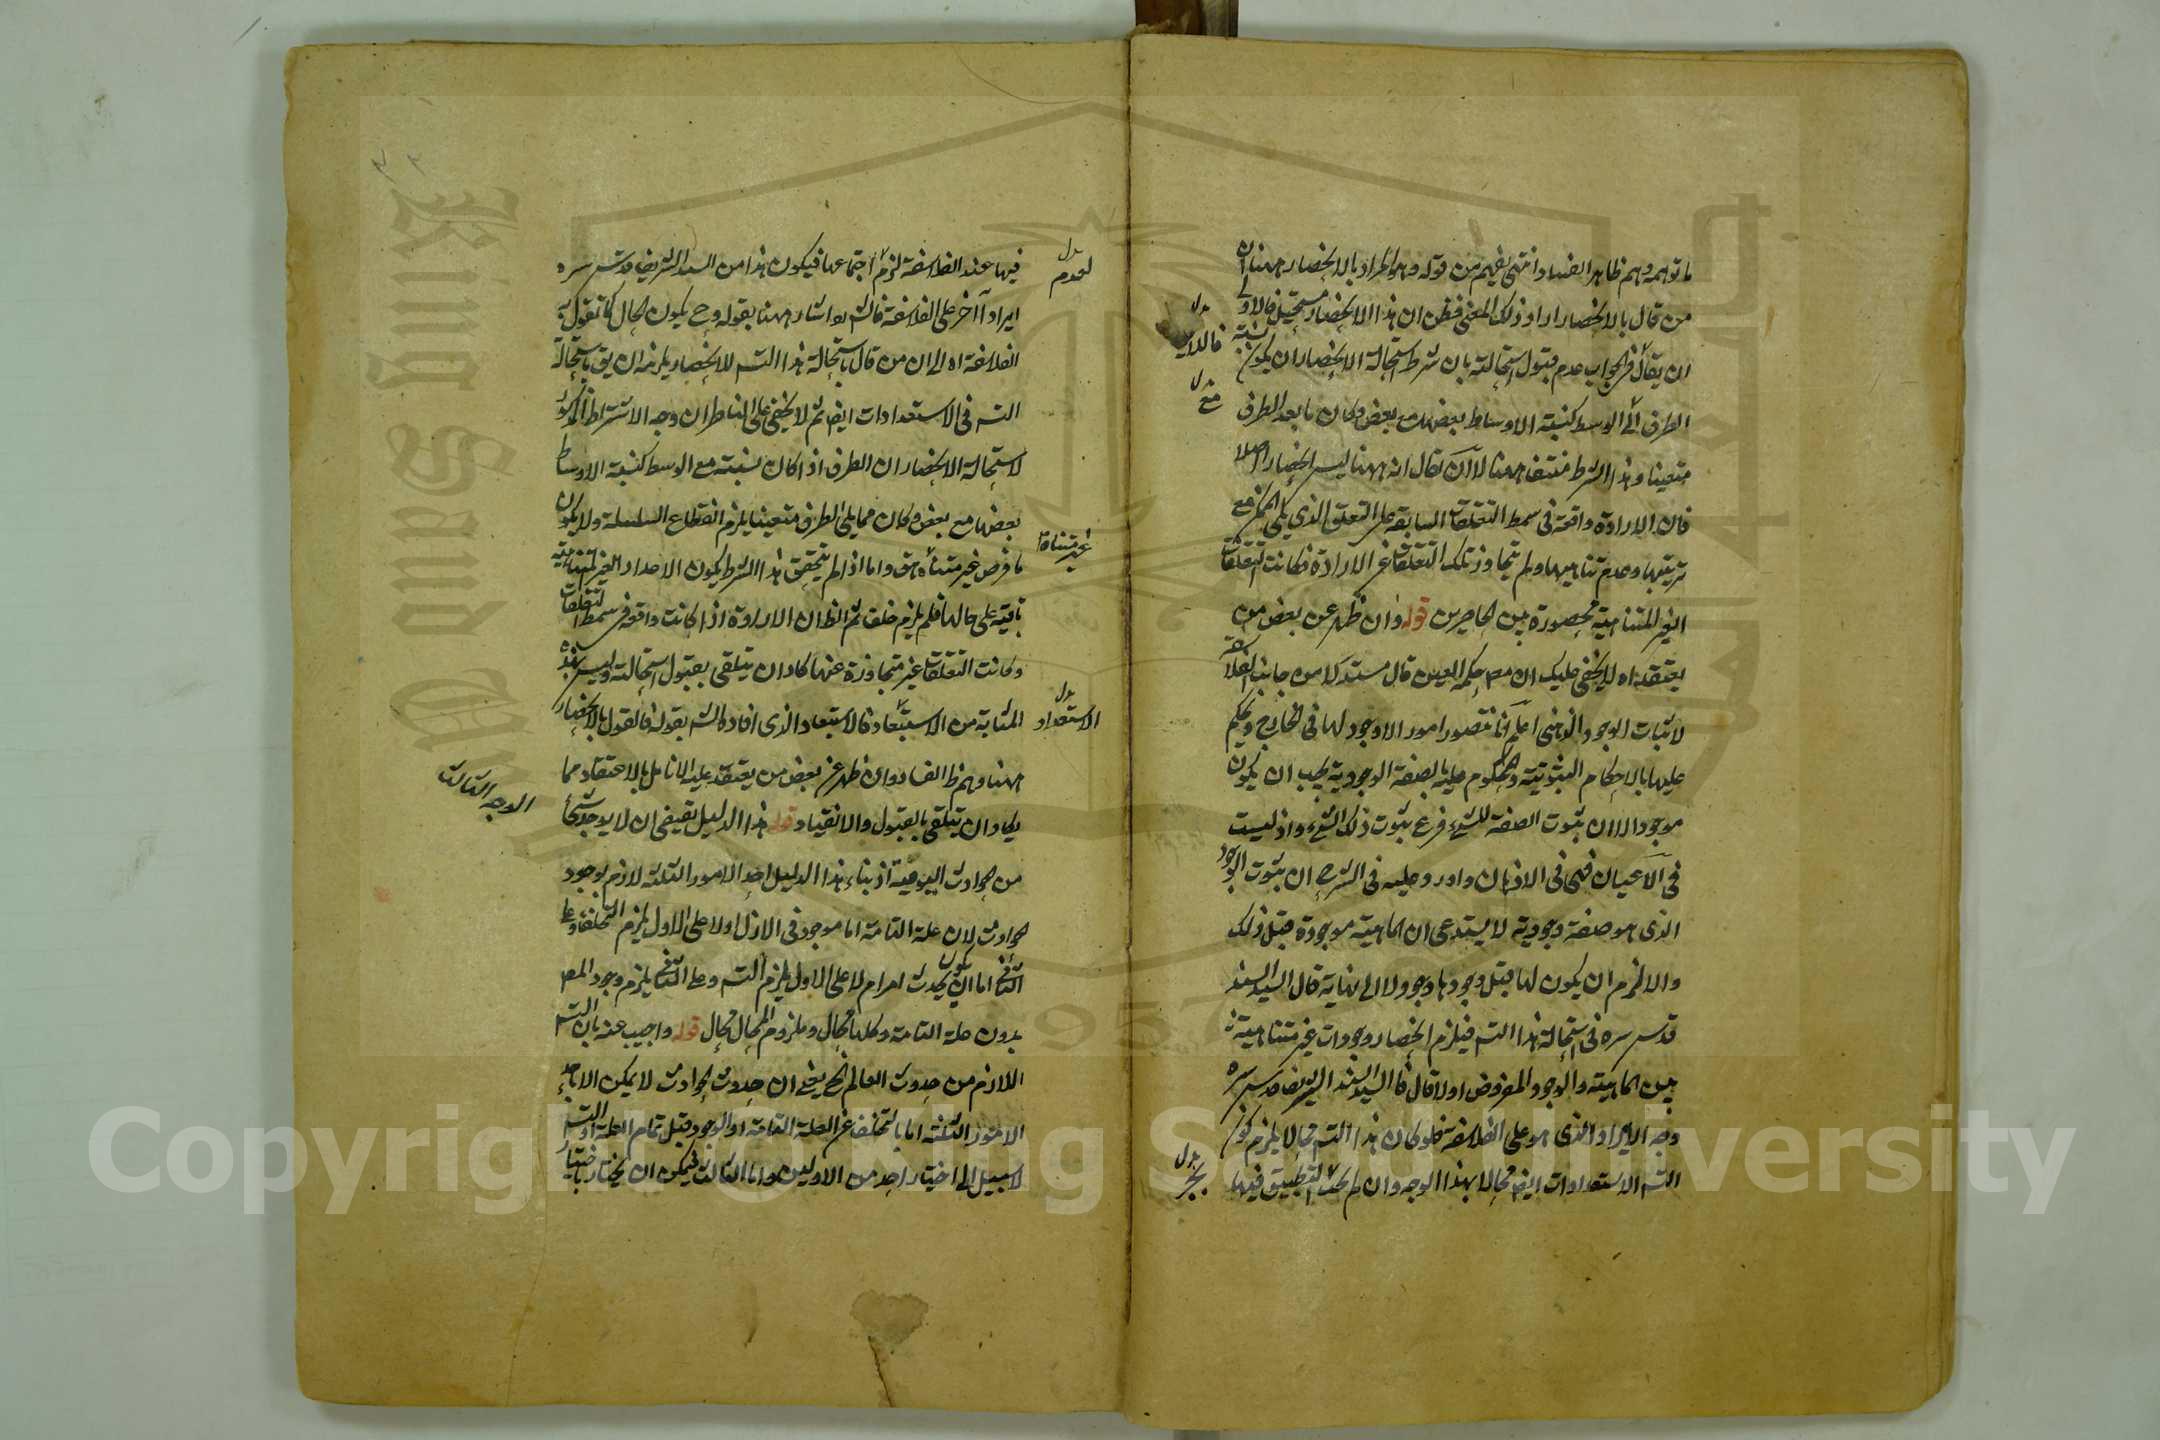 ما توهمه وهم ظاهر الفساد انتهى يفهم من قوله وهو المراد بالانحصار ههنا ان
من قال بالانحصار اراد ذلك المعنى فظن ان هذا الانحصار مستحيل فالاولى
ان يقال فى الجواب عدم قبول استحالته بان شرط استحالة الانحصار ان يكون نسبة
الطرف الى الوسط كنسبة الاوساط بعضها مع بعض وكان ما بعد الطرف
متعينا وهذا الشرط منتف ههنا لا ان يقال انه ههنا ليس انحصار اصلا
فان الارادة واقعة فى سمط التعلقات السابقة على التعلق الذى يلى الممكن مع
ترتبها وعدم تناهيها ولم يتجاوز تلك التعلقات عن الارادة فكانت التعلقات
الغير المتناهية محصورة بين الحاصرين قوله وان ظهر عن بعض من
يعتقد اه لا يخفى عليك ان مص حكمة العين قال مستدلا من جانب الفلاسفة
لاثبات الوجود الذهنى اعلم انا نتصور امور الا وجود لها فى الخارج ونحكم
عليها بالاحكام الثبوتية والمحكوم عليه بالصفة الوجودية يجب ان يكون
موجودا لان ثبوت الصفة للشئ فرع ثبوت ذلك الشئ واذ ليست
فى الاعيان فهى فى الاذهان واورد عليه فى الشرح ان ثبوت الوجود
الذى هو صفة وجودية لا يستدعى ان الماهية موجودة قبل ذلك
والا لزم ان يكون لها قبل وجودها وجود لا الى نهاية قال السيد السند
قدس سره فى استحالة هذا التس فيلزم انحصار وجودات غير متناهية
بين الماهية والوجود المفروض اولا قال فا السيد السند الشريف قدس سره
وجه الايراد الذى هو على الفلاسفة فلو كان هذا التس محالا يلزم كون
التس الاستعدادات ايض محالا بهذا الوجه وان لم يجز التطبيق فيها
بدل
فالدلا
بدل
مع
بدل
يجر
فيها عند الفلاسفة لزم اجتماعها فيكون هذا من السيد الشريف قدس سره
ايرادا آخر على الفلاسفة فالش اشار ههنا بقوله وح يكون الحال كما تقول به
الفلاسفة اه الى ان من قال باستحالة هذا التس للانحصار يلزمه ان يق باستحالة
التس فى الاستعدادات ايض ثم لا يخفى على الناظر ان وجه الاشتراط المذكور
لاستحالة الانحصار ان الطرف اذا كان نسبته مع الوسط كنسبة الاوساط
بعضها مع بعض وكان مما يلى الطرف متعينا يلزم انقطاع السلسلة ولا يكون
ما فرض غير متناه هف واما اذا لم يتحقق هذا الشرط يكون الاعداد الغير المتناهية
باقية على حالها فلم يلزم خلف ثم الظ ان الارادة اذا كانت واقعة فى سمط التعلقات
وكانت التعلقات غير متجاوزة عنها كاد ان يتلقى بقبول استحالته وليس بهذه
المثابة من الاستبعاد فالاستبعاد الذى افاده الش بقوله فالقول بالانحصار
ههنا وهم ظ الفساد وان ظهر عن بعض من يعتقد عليه الانامل بالاعتقاد مما
يكاد ان يتلقى بالقبول والانقياد قوله هذا الدليل يقتضى ان لا يوجد شئ
من الحوادث اليومية اذ بناء هذا الدليل احد الامور الثلثة لازم بوجود
حوادث لان علة التامة اما موجود فى الازل اولا على الاول يلزم التخلف وعلى
الثانى اما ان يكون بحدث امر ام لا على الاول يلزم التس وعلى الثانى يلزم وجود المعـ
بدون علة التامة وكلها محال وملزوم المحال محال قوله واجيب عنه بان التس
اللازم من حدوث العالم الخ يعنى ان حدوث الحوادث لا يمكن الا باحد
الامور الثلثة اما بالتخلف عن العلة التامة او الوجود قبل تمام العلة او التس
لا سبيل الى اختيار احد من الاولين واما الثالث فيمكن ان يختار باختيار
بدل
لعدم
غير متناه
بدل
الاستعداد
الوجه الثالث
Copyright © King Saud University
King Saud University
1957